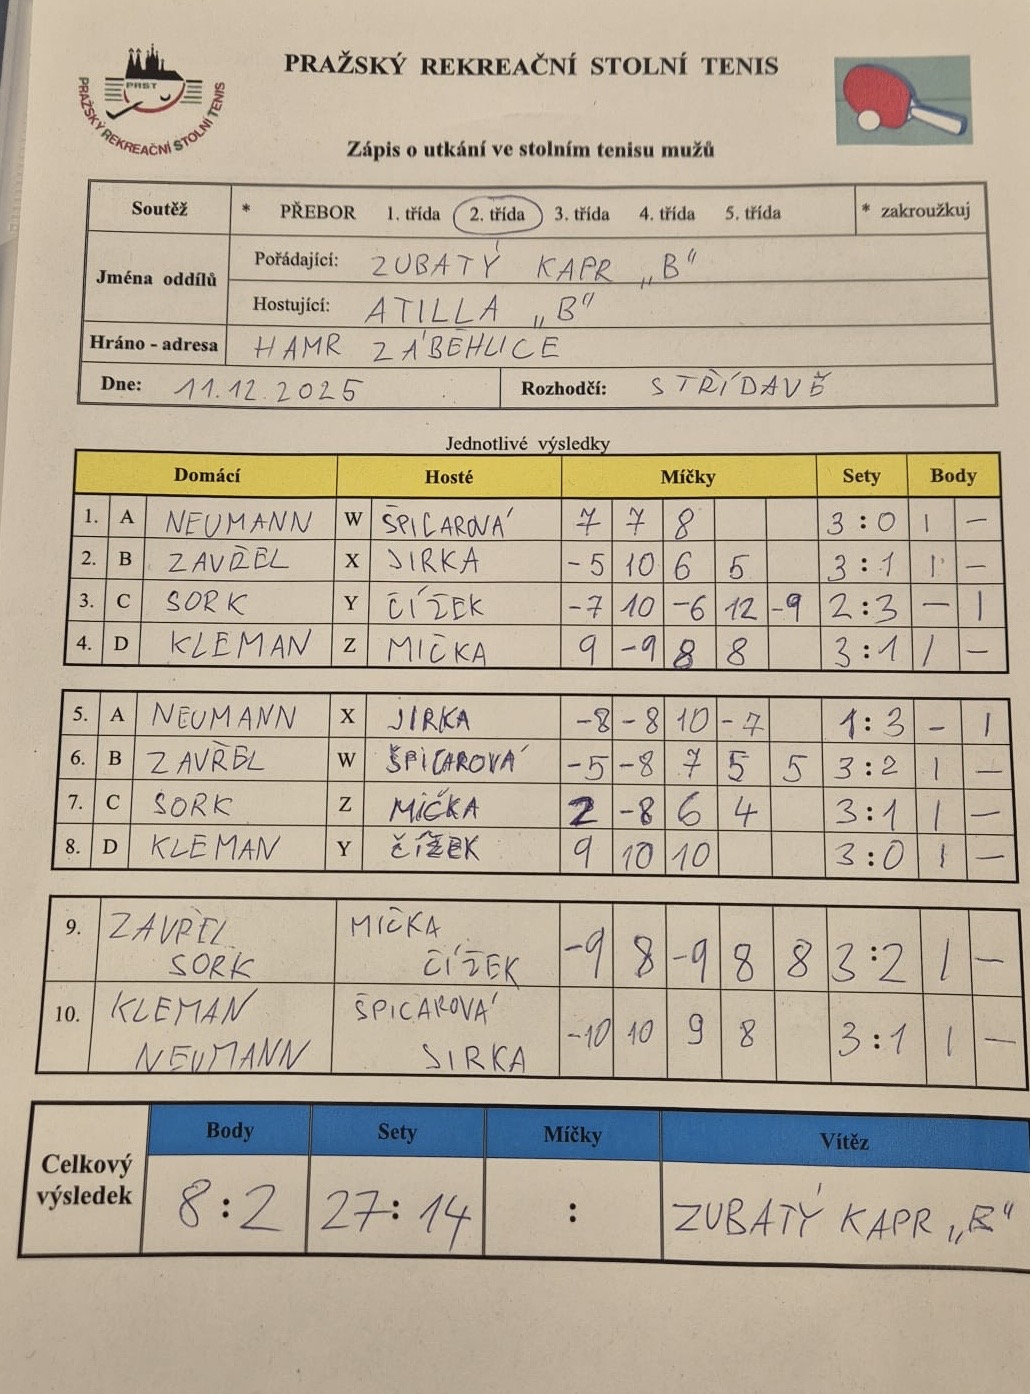 PRAŽSKÝ REKREAČNÍ STOLNÍ TENIS
PRST
PRAŽSKÝ REKREAČNÍ STOLNÍ TENIS
Zápis o utkání ve stolním tenisu mužů
Soutěž * PŘEBOR 1. třída 2. třída 3. třída 4. třída 5. třída * zakroužkuj
Jména oddílů
Pořádající: ZUBATÝ KAPR „B“
Hostující: ATILLA „B“
Hráno - adresa HAMR ZÁBĚHLICE
Dne: 11.12.2025 Rozhodčí: STŘÍDAVĚ
Jednotlivé výsledky
Domácí Hosté Míčky Sety Body
1. A NEUMANN W ŠPICAROVÁ 7 7 8 3:0 1 –
2. B ZAVŘEL X JIRKA -5 10 6 5 3:1 1 –
3. C SORK Y ČÍŽEK -7 10 -6 12 -9 2:3 – 1
4. D KLEMAN Z MIČKA 9 -9 8 8 3:1 1 –
5. A NEUMANN X JIRKA -8 -8 10 -7 1:3 – 1
6. B ZAVŘEL W ŠPICAROVÁ -5 -8 7 5 5 3:2 1 –
7. C SORK Z MIČKA 2 -8 6 4 3:1 1 –
8. D KLEMAN Y ČÍŽEK 9 10 10 3:0 1 –
9. ZAVŘEL MIČKA -9 8 -9 8 8 3:2 1 –
SORK ČÍŽEK
10. KLEMAN ŠPICAROVÁ -10 10 9 8 3:1 1 –
NEUMANN JIRKA
Celkový výsledek
Body Sety Míčky Vítěz
8:2 27:14 : ZUBATÝ KAPR „B“